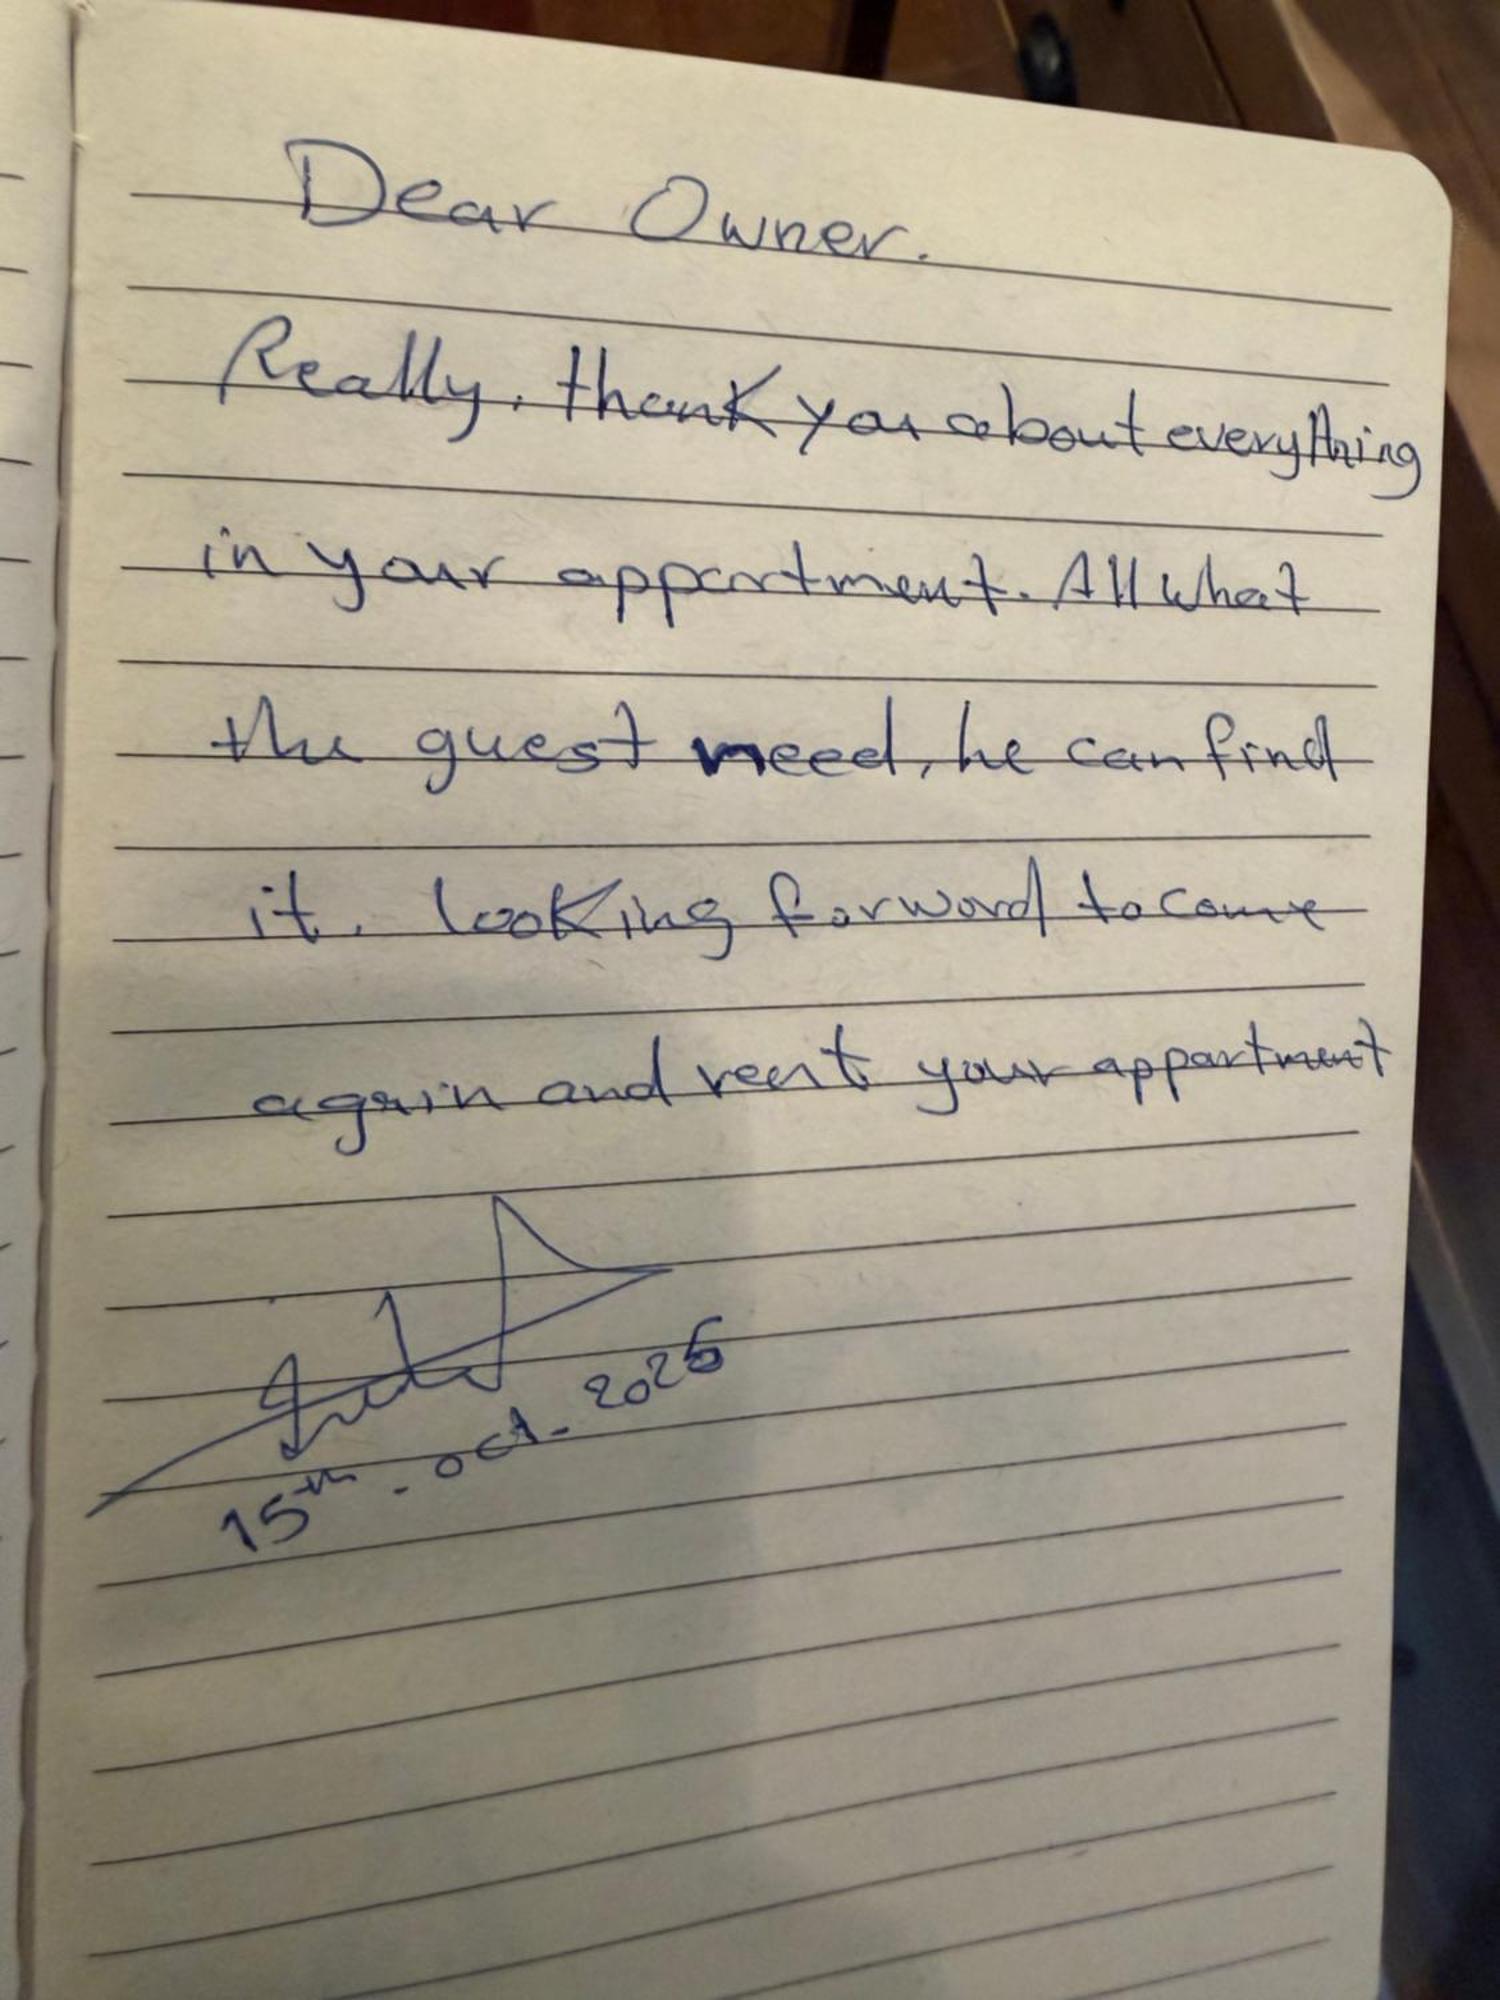 Dear Owner.
Really, thank you about everything
in your appartment. All what
the guest need, he can find
it. looking forword to come
again and reent your appartment
15th. oct. 2025